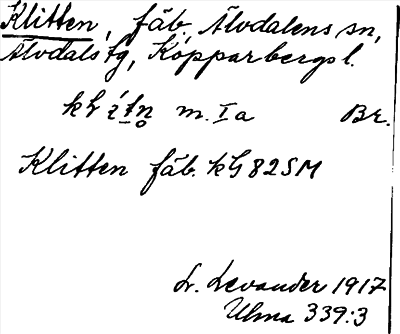 Klitten, fäb., Älvdalens sn,
Älvdals tg, Kopparbergs l.
m. Ia Br.
Klitten fäb. kG 82SM
L. Levander 1917
Ulma 339:3